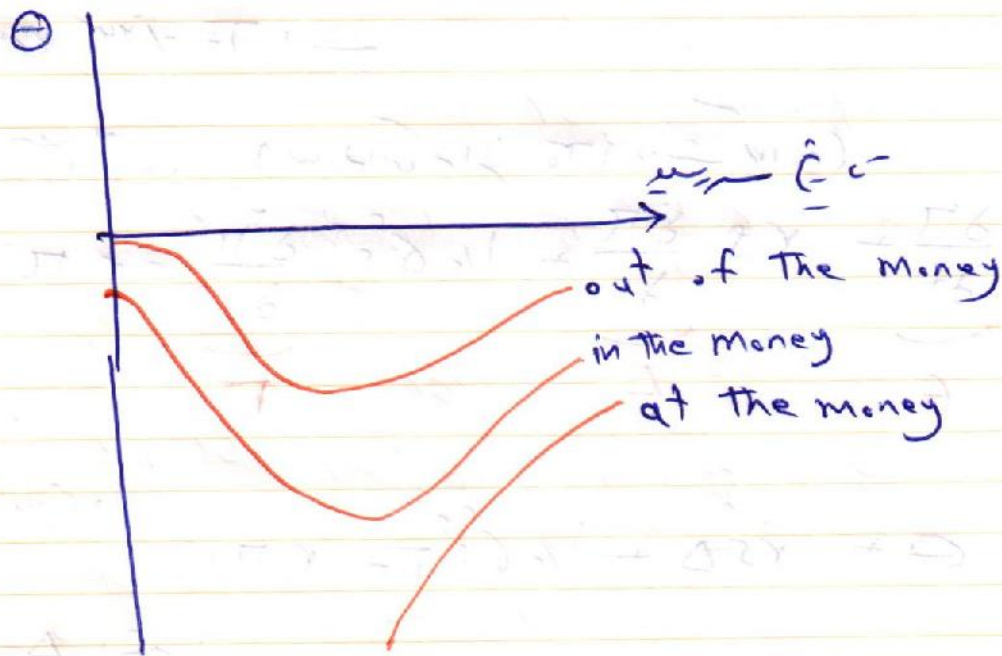 Θ
ت خ سررسید
out of the money
in the money
at the money